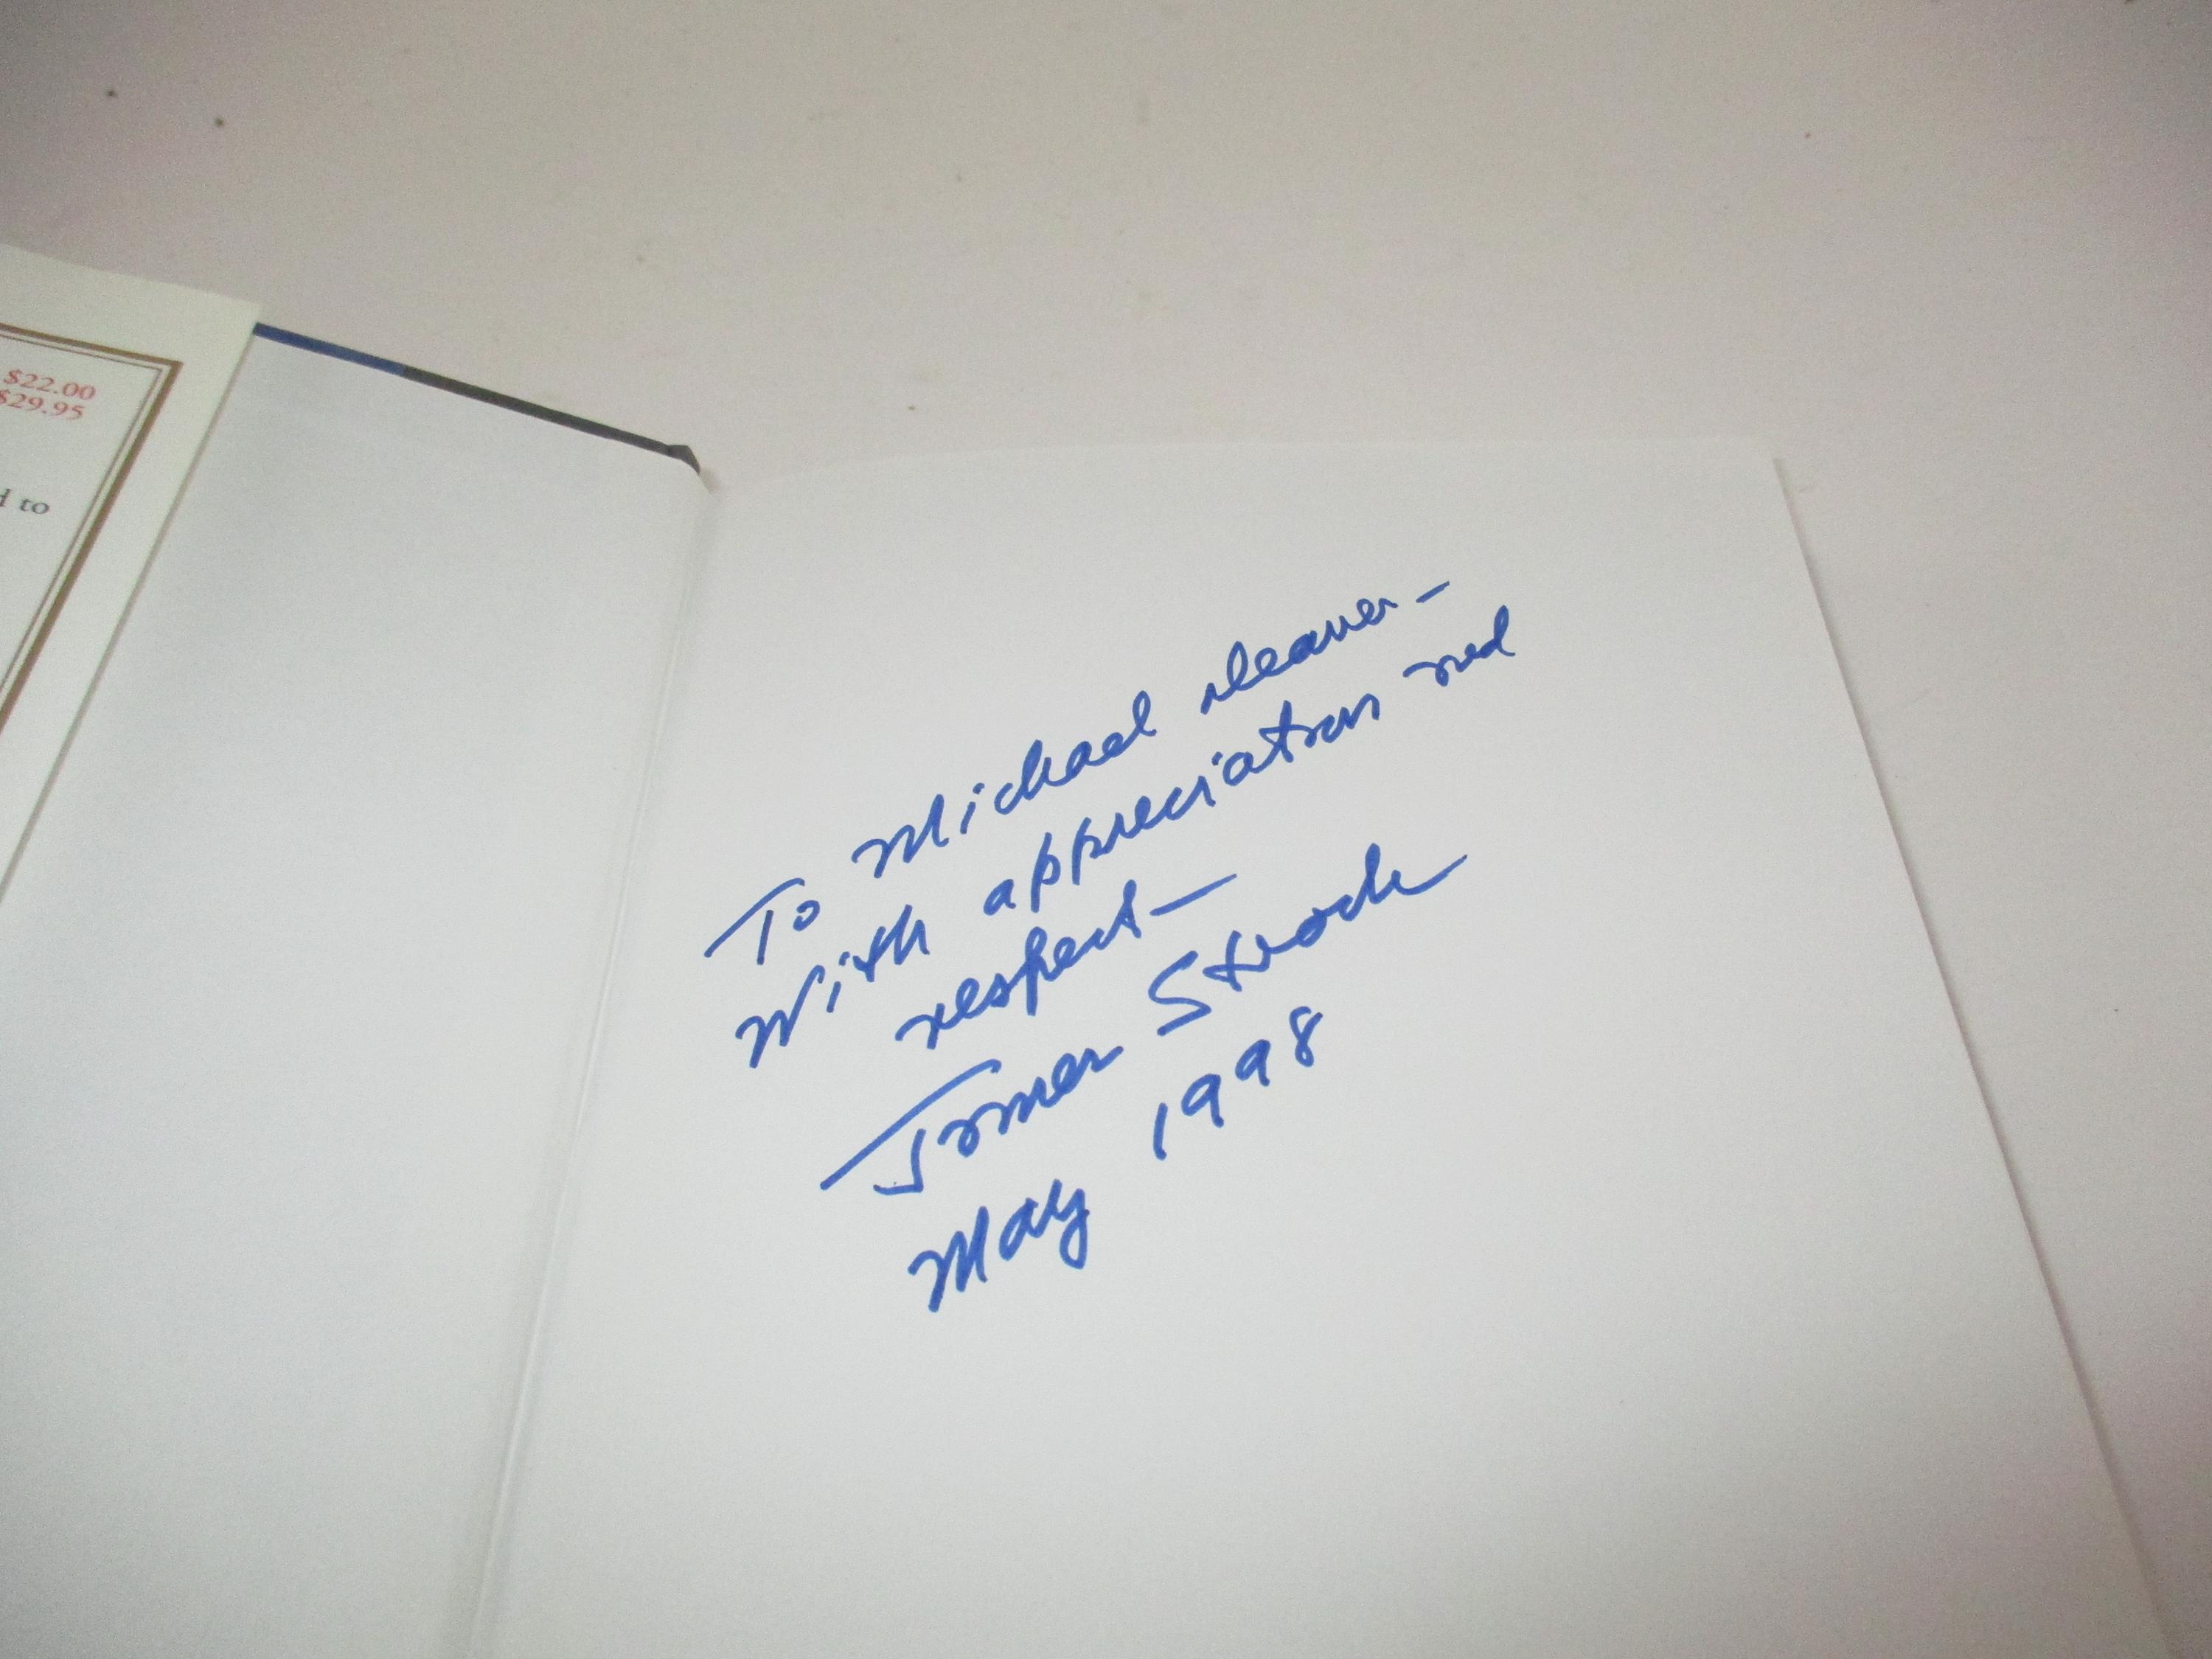 $22.00
$29.95
d to
To Michael Cleaver –
With appreciation and
respect –
James Strock
May 1998